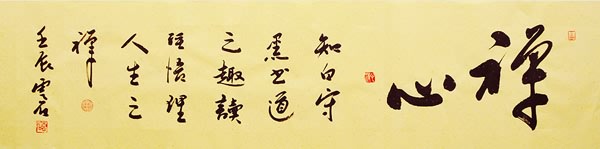 禅心
知白守
黑书道
之趣讀
經悟理
人生之
禅
壬辰雲石